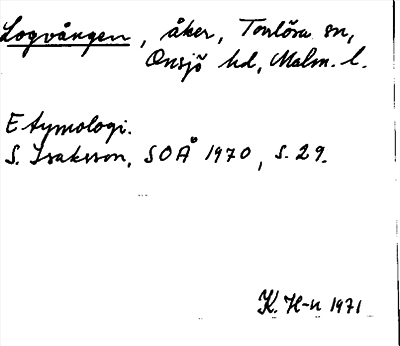 Logvången, åker, Torrlösa sn,
Onsjö hd, Malm. l.
Etymologi.
S. Isaksson, SOÅ 1970, s. 29.
K. H-n 1971